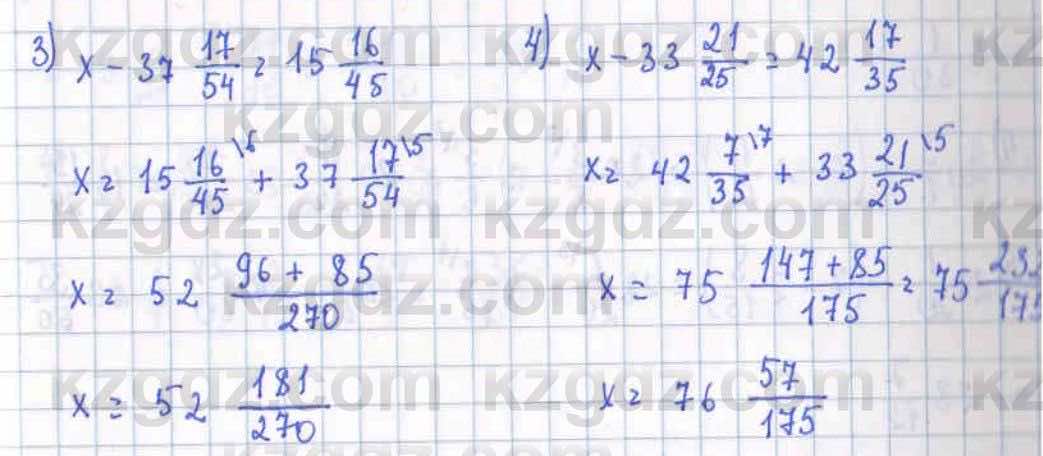 3) x - 37 17/54 = 15 16/45
x = 15 16/45 \6 + 37 17/54 \5
x = 52 (96 + 85)/270
x = 52 181/270
4) x - 33 21/25 = 42 17/35
x = 42 7/35 \7 + 33 21/25 \5
x = 75 (147 + 85)/175 = 75
x = 76 57/175
kzgdz.com
kzgdz.com
kzgdz.com
kzgdz.com
kzgdz.com
kzgdz.com
kzgdz.com
kzgdz.com